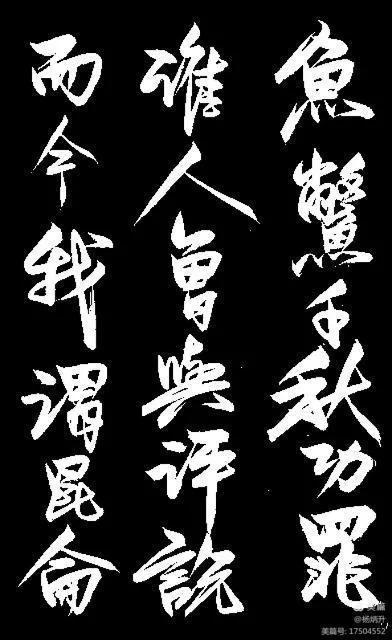 魚鱉千秋功罪
誰人曾與評說
而今我謂昆侖
美篇
@杨炳升
美篇号: 17504552